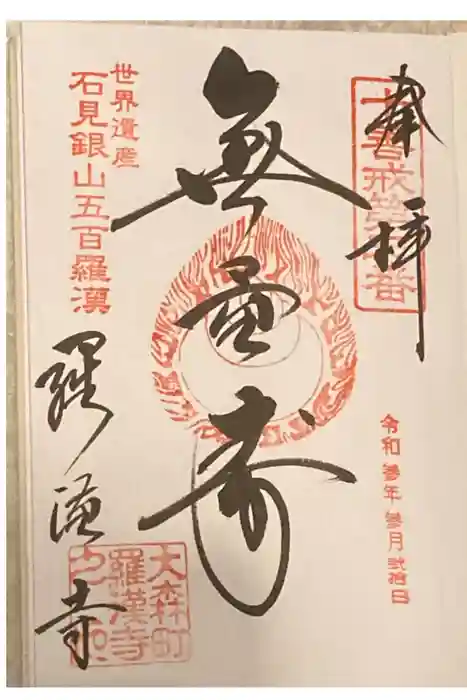 奉拝
令和參年參月弐拾日
無量寿
世界遺産
石見銀山五百羅漢
羅漢寺
大森町
羅漢寺